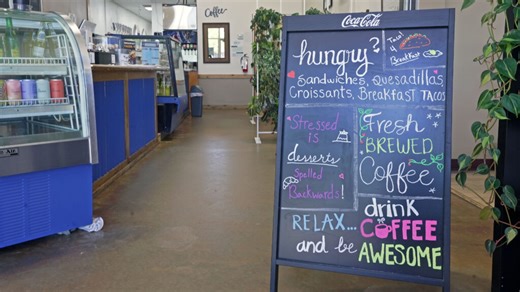 Coffee
Coca-Cola
hungry?
Taco!
4
Breakfast
Sandwiches, Quesadillas,
Croissants, Breakfast Tacos
Stressed is
desserts
Spelled
Backwards!
Fresh
BREWED
Coffee
RELAX...
and be
drink
COFFEE
AWESOME